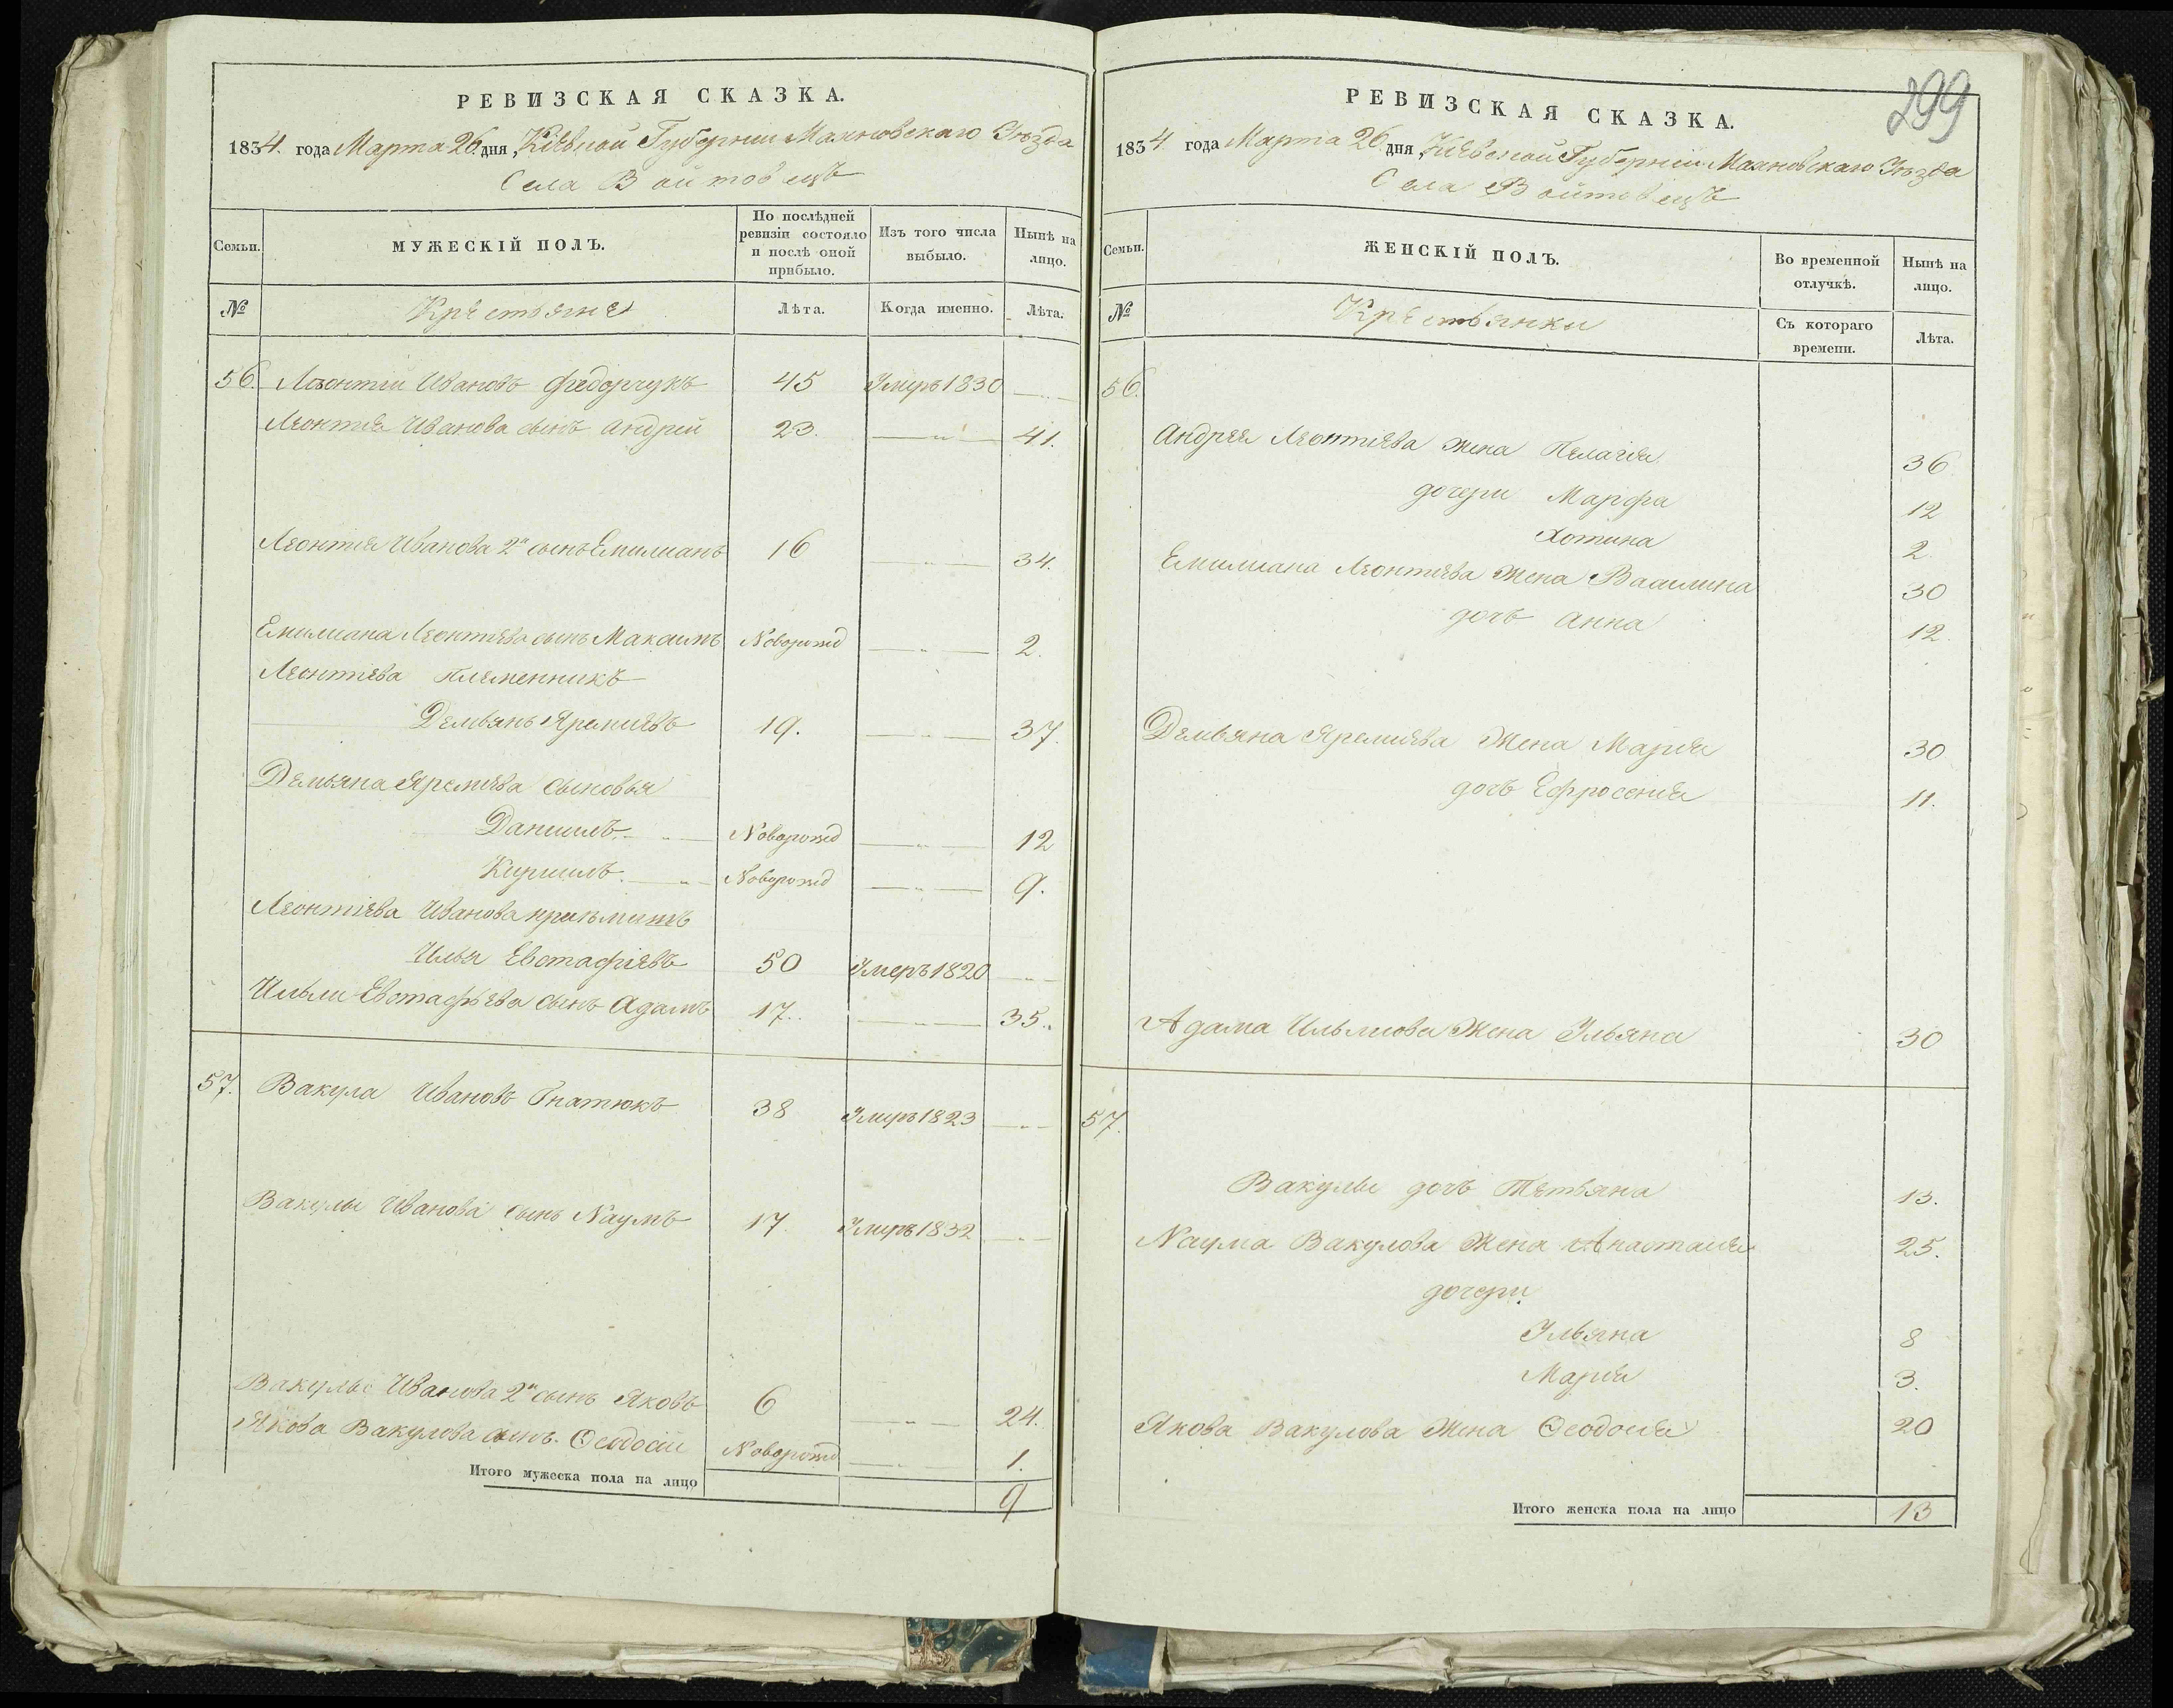 РЕВИЗСКАЯ СКАЗКА.
1834. года Марта 26. дня, Кіевской Губерніи Махновскаго Уѣзда
Села Войтовецъ
Семьи.
МУЖЕСКІЙ ПОЛЪ.
По послѣдней ревизіи состояло и послѣ оной прибыло.
Изъ того числа выбыло.
Нынѣ на лицо.
№
Крестьяне
Лѣта.
Когда именно.
Лѣта.
56. Леонтій Ивановъ Федорчукъ 45 Умеръ 1830
Леонтія Иванова сынъ Андрій 23. 41.
Леонтія Иванова 2й сынъ Емилианъ 16 34.
Емилиана Леонтіева сынъ Максимъ Новорожд 2.
Леонтіева племенникъ
Демьянъ Яреміевъ 19. 37.
Демьяна Яреміева сыновья
Даниилъ Новорожд 12
Кириилъ Новорожд 9.
Леонтіева Иванова приъмышъ
Илья Евстафіевъ 50 Умеръ 1820
Ильи Евстафьева сынъ Адамъ 17. 35.
57. Вакула Ивановъ Гнатюкъ 38 Умеръ 1823
Вакулы Иванова сынъ Наумъ 17 Умеръ 1832
Вакулы Иванова 2й сынъ Яковъ 6 24.
Якова Вакулова сынъ Ѳеодосій Новорожд 1.
Итого мужеска пола на лицо 9
299
РЕВИЗСКАЯ СКАЗКА.
1834. года Марта 26. дня, Кіевской Губерніи Махновскаго Уѣзда
Села Войтовецъ
Семьи.
ЖЕНСКІЙ ПОЛЪ.
Во временной отлучкѣ.
Нынѣ на лицо.
№
Крестьянки
Съ котораго времени.
Лѣта.
56.
Андрея Леонтіева жена Пелагія 36
дочери Марфа 12
Хотина 2.
Емилиана Леонтіева жена Василина 30
дочъ Анна 12.
Демьяна Яреміева жена Марія 30
дочъ Ефросенія 11.
Адама Ильиова жена Ульяна 30
57.
Вакулы дочъ Тетьяна 13.
Наума Вакулова жена Анастасія 25.
дочери
Ульяна 8
Марія 3.
Якова Вакулова жена Ѳеодосія 20
Итого женска пола на лицо 13